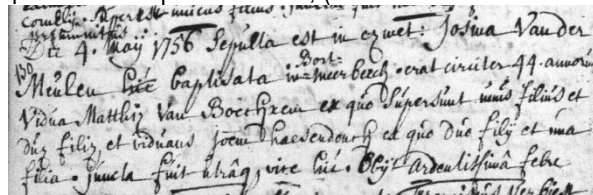 Die 4. Maÿ 1756 Sepulta est in cȝmet: Josina Vander
130
Meulen hic baptisata in Bort-meerbeech. erat circiter 44. annorū
Vidua Matthiȝ Van Boeckxem ex quo supersunt unus filius et
duȝ filiȝ et viduavs Joēm haesendonck ex quo duo filÿ et una
filia. juncta fuit utrâq. vice hic. Obÿt ardentissimâ febre